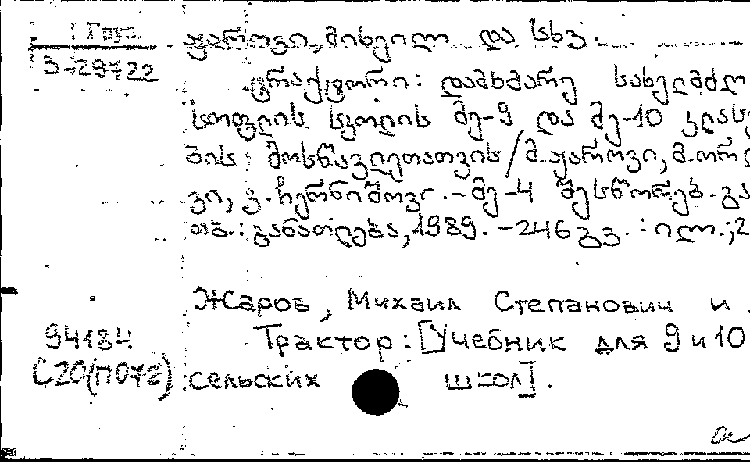 1 Груз.
3-29722
ჟაროვი, მიხეილ და სხვ.
ტრაქტორი: დამხმარე სახელმძღ
სოფლის სკოლის მე-9 და მე-10 კლასე
ბის მოსწავლეთათვის/მ.ჟაროვი, მ.ორლ
ვი, ვ.ჩერნიშოვი.-მე-4 შესწორებ.გა
თბ.: განათლება, 1989.-246 გვ.: ილ.; 2
Жаров, Михаил Степанович и
94184 Трактор: [Учебник для 9 и 10
С20(П072) сельских школ].